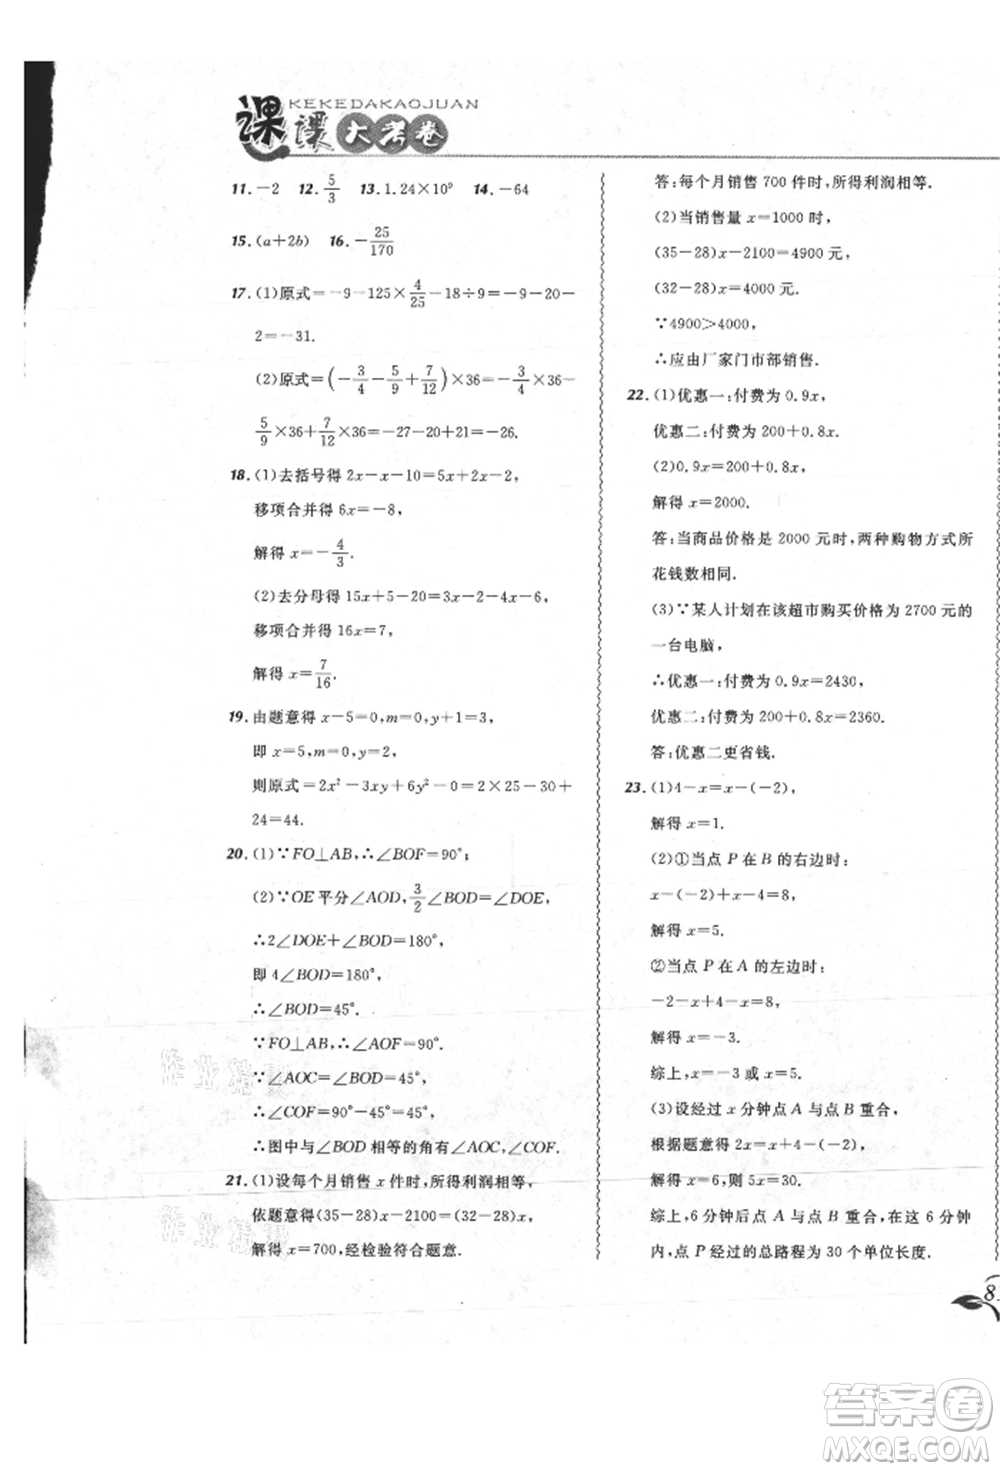 KEKEDAKAOJUAN
课课大考卷
11. -2  12. 5/3  13. 1.24×10⁹  14. -64
15. (a+2b)  16. -25/170
17. (1)原式=-9-125×4/25-18÷9=-9-20-
2=-31.
(2)原式=(-3/4-5/9+7/12)×36=-3/4×36-
5/9×36+7/12×36=-27-20+21=-26.
18. (1)去括号得 2x-x-10=5x+2x-2,
移项合并得 6x=-8,
解得 x=-4/3.
(2)去分母得 15x+5-20=3x-2-4x-6,
移项合并得 16x=7,
解得 x=7/16.
19. 由题意得 x-5=0,m=0,y+1=3,
即 x=5,m=0,y=2,
则原式=2x²-3xy+6y²=50-25-30+
24=44.
20. (1)∵FO⊥AB,∴∠BOF=90°;
(2)∵OE 平分∠AOD,3/2∠BOD=∠DOE,
∴2∠DOE+∠BOD=180°,
即 4∠BOD=180°,
∴∠BOD=45°.
∵FO⊥AB,∴∠AOF=90°,
∵∠AOC=∠BOD=45°,
∴∠COF=90°-45°=45°,
∴图中与∠BOD 相等的角有∠AOC,∠COF.
21. (1)设每个月销售 x 件时,所得利润相等,
依题意得(35-28)x-2100=(32-28)x,
解得 x=700,经检验符合题意.
答:每个月销售 700 件时,所得利润相等.
(2)当销售量 x=1000 时,
(35-28)x-2100=4900 元,
(32-28)x=4000 元.
∵4900>4000,
∴应由厂家门市部销售.
22. (1)优惠一:付费为 0.9x,
优惠二:付费为 200+0.8x.
(2)0.9x=200+0.8x,
解得 x=2000.
答:当商品价格是 2000 元时,两种购物方式所
花钱数相同.
(3)∵某人计划在该超市购买价格为 2700 元的
一台电脑,
∴优惠一:付费为 0.9x=2430,
优惠二:付费为 200+0.8x=2360.
答:优惠二更省钱.
23. (1)4-x=x-(-2),
解得 x=1.
(2)①当点 P 在 B 的右边时:
x-(-2)+x-4=8,
解得 x=5.
②当点 P 在 A 的左边时:
-2-x+4-x=8,
解得 x=-3.
综上,x=-3 或 x=5.
(3)设经过 x 分钟点 A 与点 B 重合,
根据题意得 2x=x+4-(-2),
解得 x=6,则 5x=30.
综上,6 分钟后点 A 与点 B 重合,在这 6 分钟
内,点 P 经过的总路程为 30 个单位长度.
答案卷
MXQE.COM